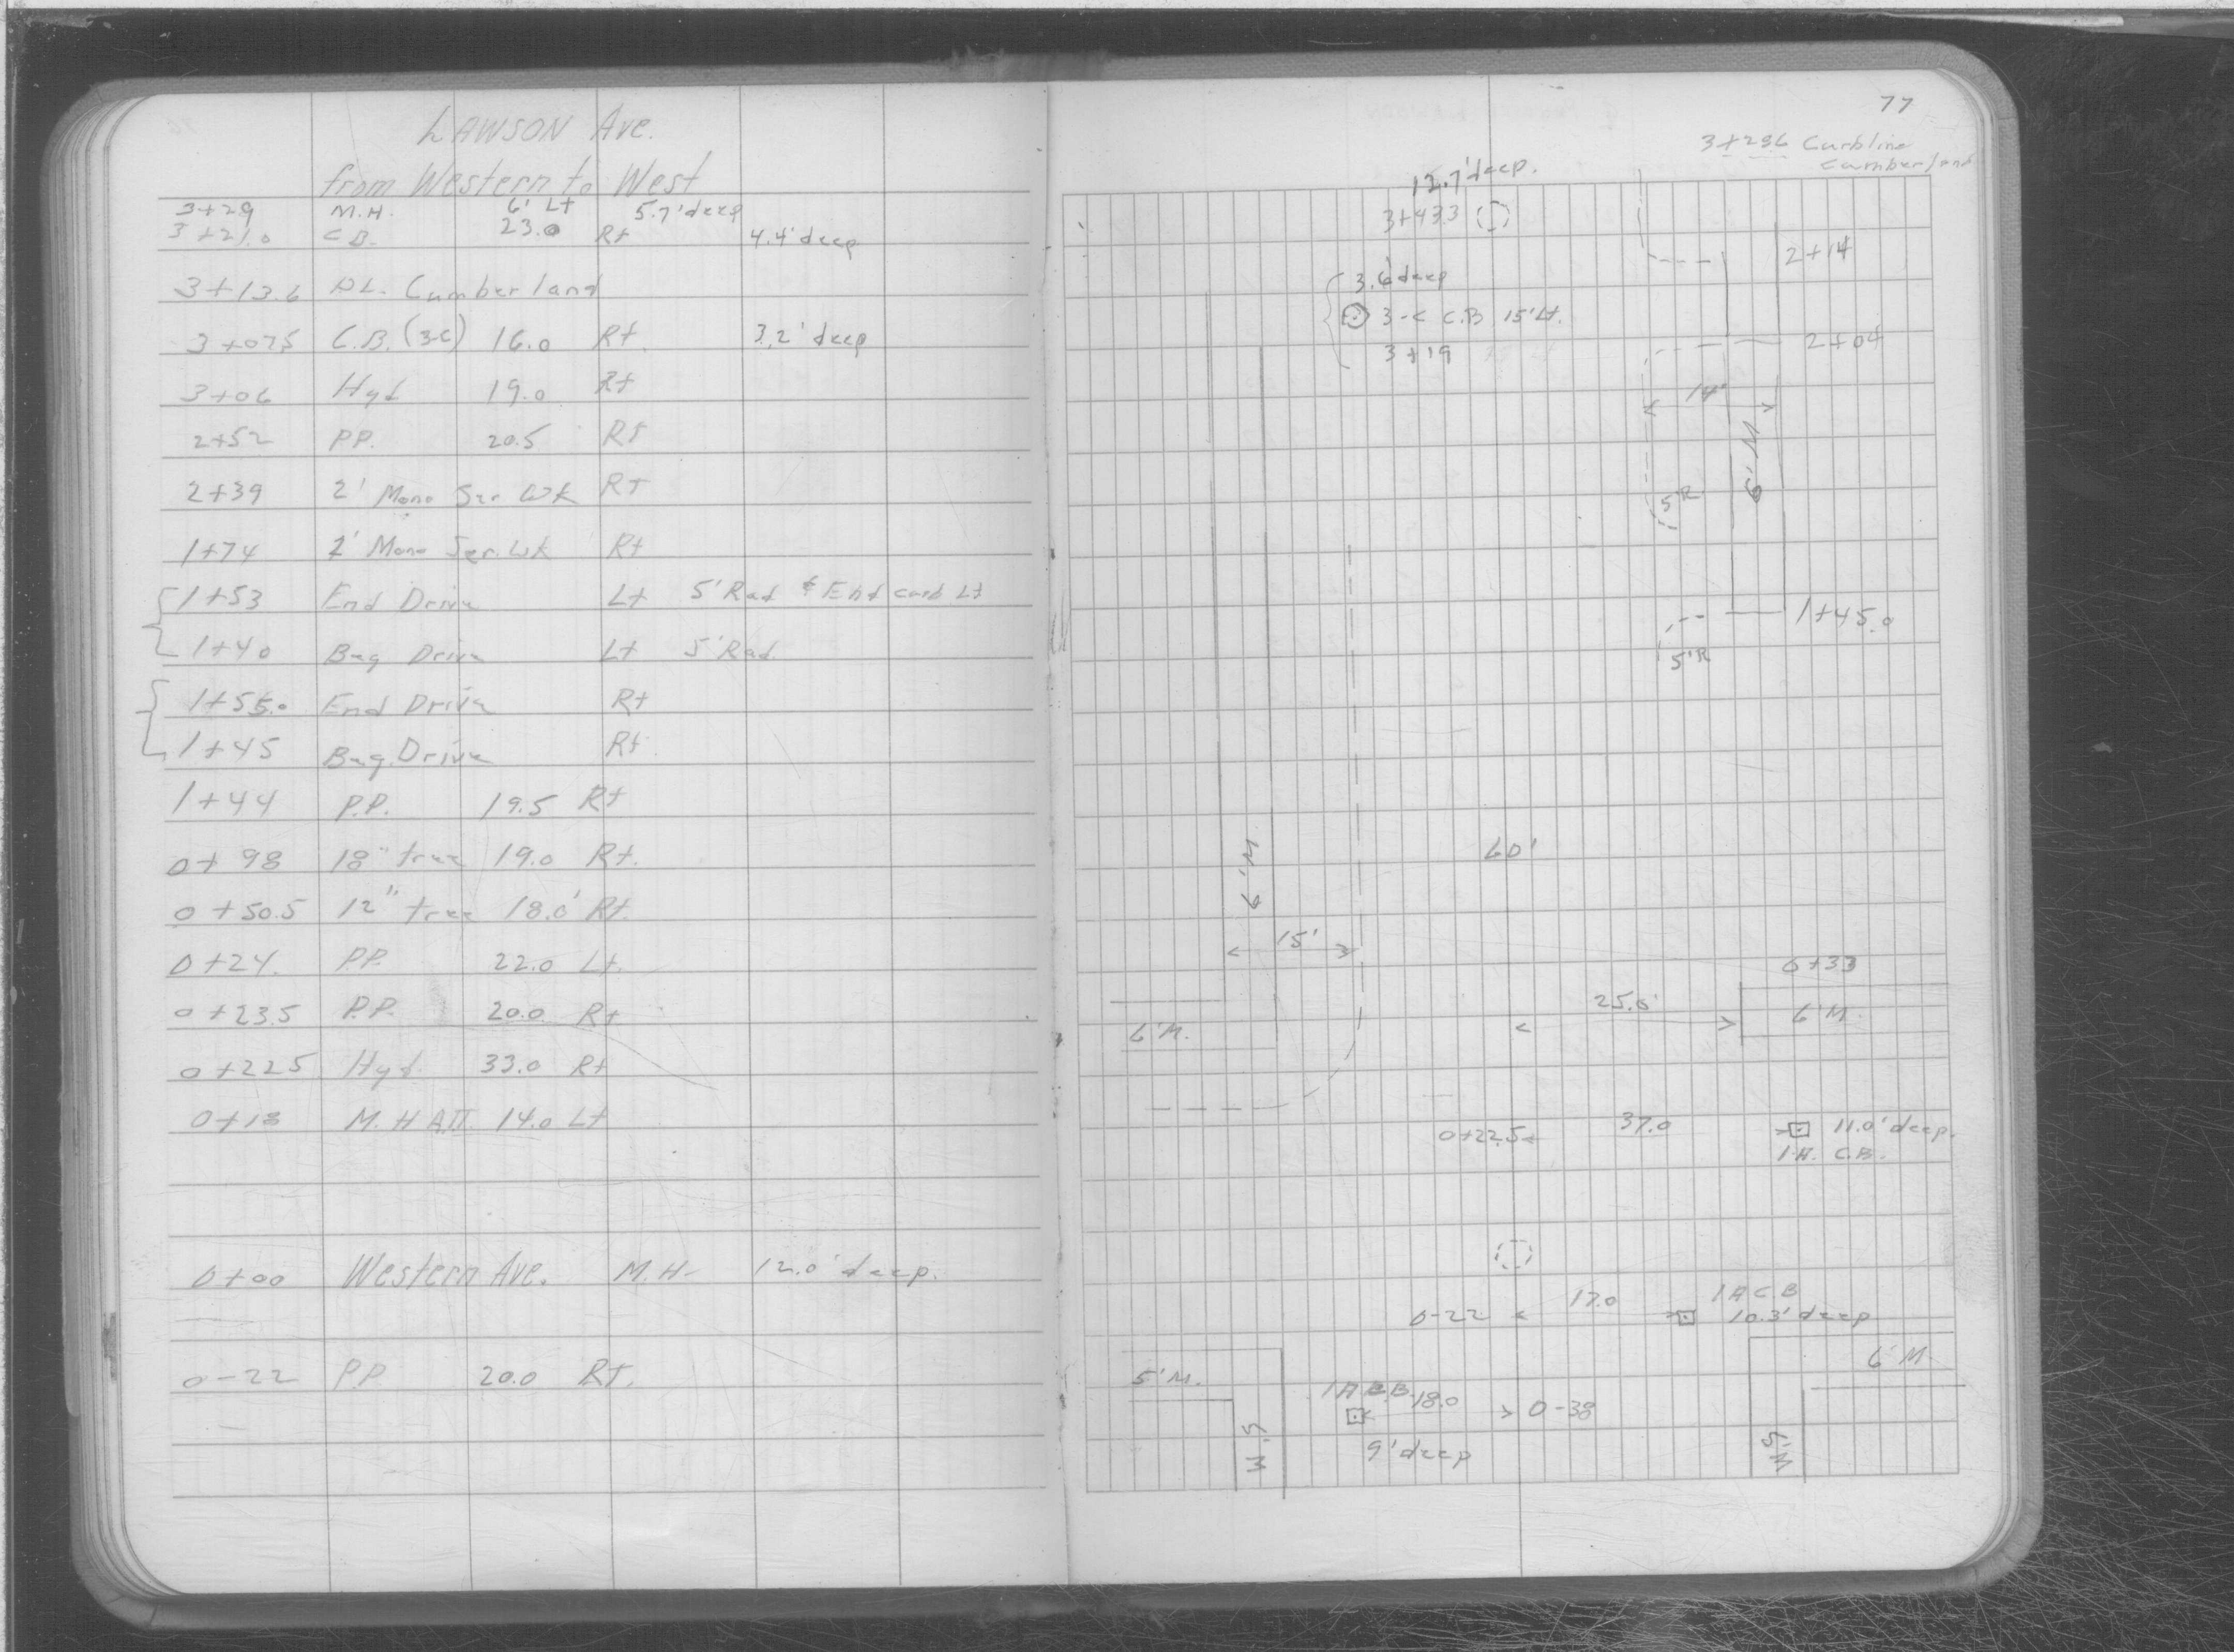 LAWSON Ave.
from Western to West
3+29 M.H. 6' Lt 5.7' deep
3+21.0 C.B. 23.0 Rt 4.4' deep
3+13.6 P.L. Cumberland
3+07.5 C.B. (3-C) 16.0 Rt. 3.2' deep
3+06 Hyd 19.0 Rt
2+52 P.P. 20.5 Rt
2+39 2' Mono Ser Wk Rt
1+74 2' Mono Ser. Wk Rt
1+53 End Drive Lt 5' Rad & End curb Lt
1+40 Beg Drive Lt 5' Rad.
1+55.0 End Drive Rt
1+45 Beg. Drive Rt.
1+44 P.P. 19.5 Rt
0+98 18" tree 19.0 Rt.
0+50.5 12" tree 18.0' Rt.
0+24. P.P. 22.0 Lt.
0+23.5 P.P. 20.0 Rt
0+22.5 Hyd. 33.0 Rt
0+18 M.H. ATT. 14.0 Lt
0+00 Western Ave. M.H. 12.0' deep.
0-22 P.P. 20.0 Rt.
77
3+296 Curbline
Cumberland
12.7' deep.
3+433
2+14
3.6 deep
3-C C.B. 15' Lt.
3+19
2+04
14'
6' M
5'R
1+45.0
5'R
60'
6' M.
15'
0+33
25.5'
6' M.
6' M.
0+22.5
37.0
11.0' deep.
1-A. C.B.
17.0
1 A C.B
0-22
10.3' deep
6' M.
5' M.
1 A C.B.
18.0
0-38
9' deep